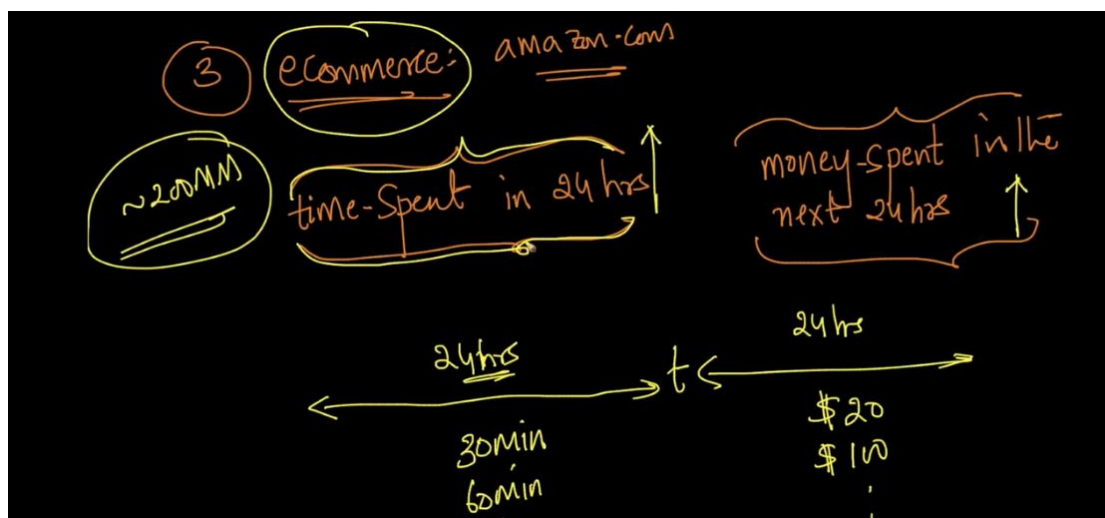 3 eCommerce: amazon.com
~200MM
time-Spent in 24 hrs
money-Spent in the
next 24 hrs
24 hrs t 24 hrs
30min $20
60min $100